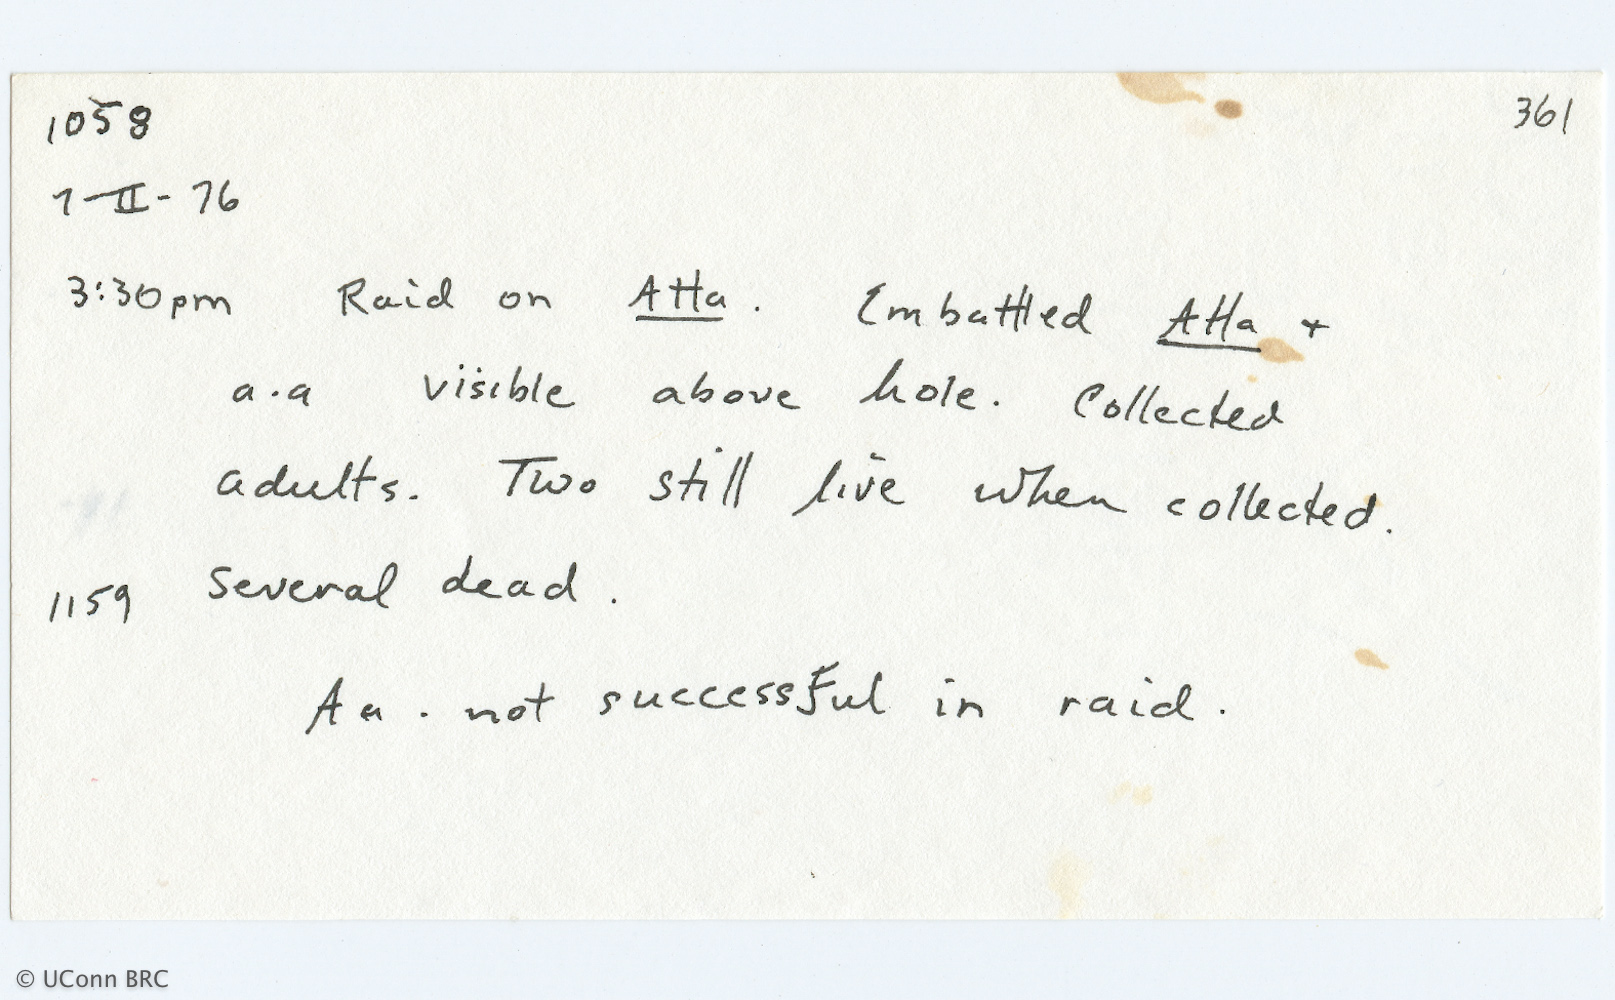 1058
361
7-II-76
3:30pm Raid on Atta. Embattled Atta +
a.a visible above hole. Collected
adults. Two still live when collected.
1159 Several dead.
Aa. not successful in raid.
© UConn BRC